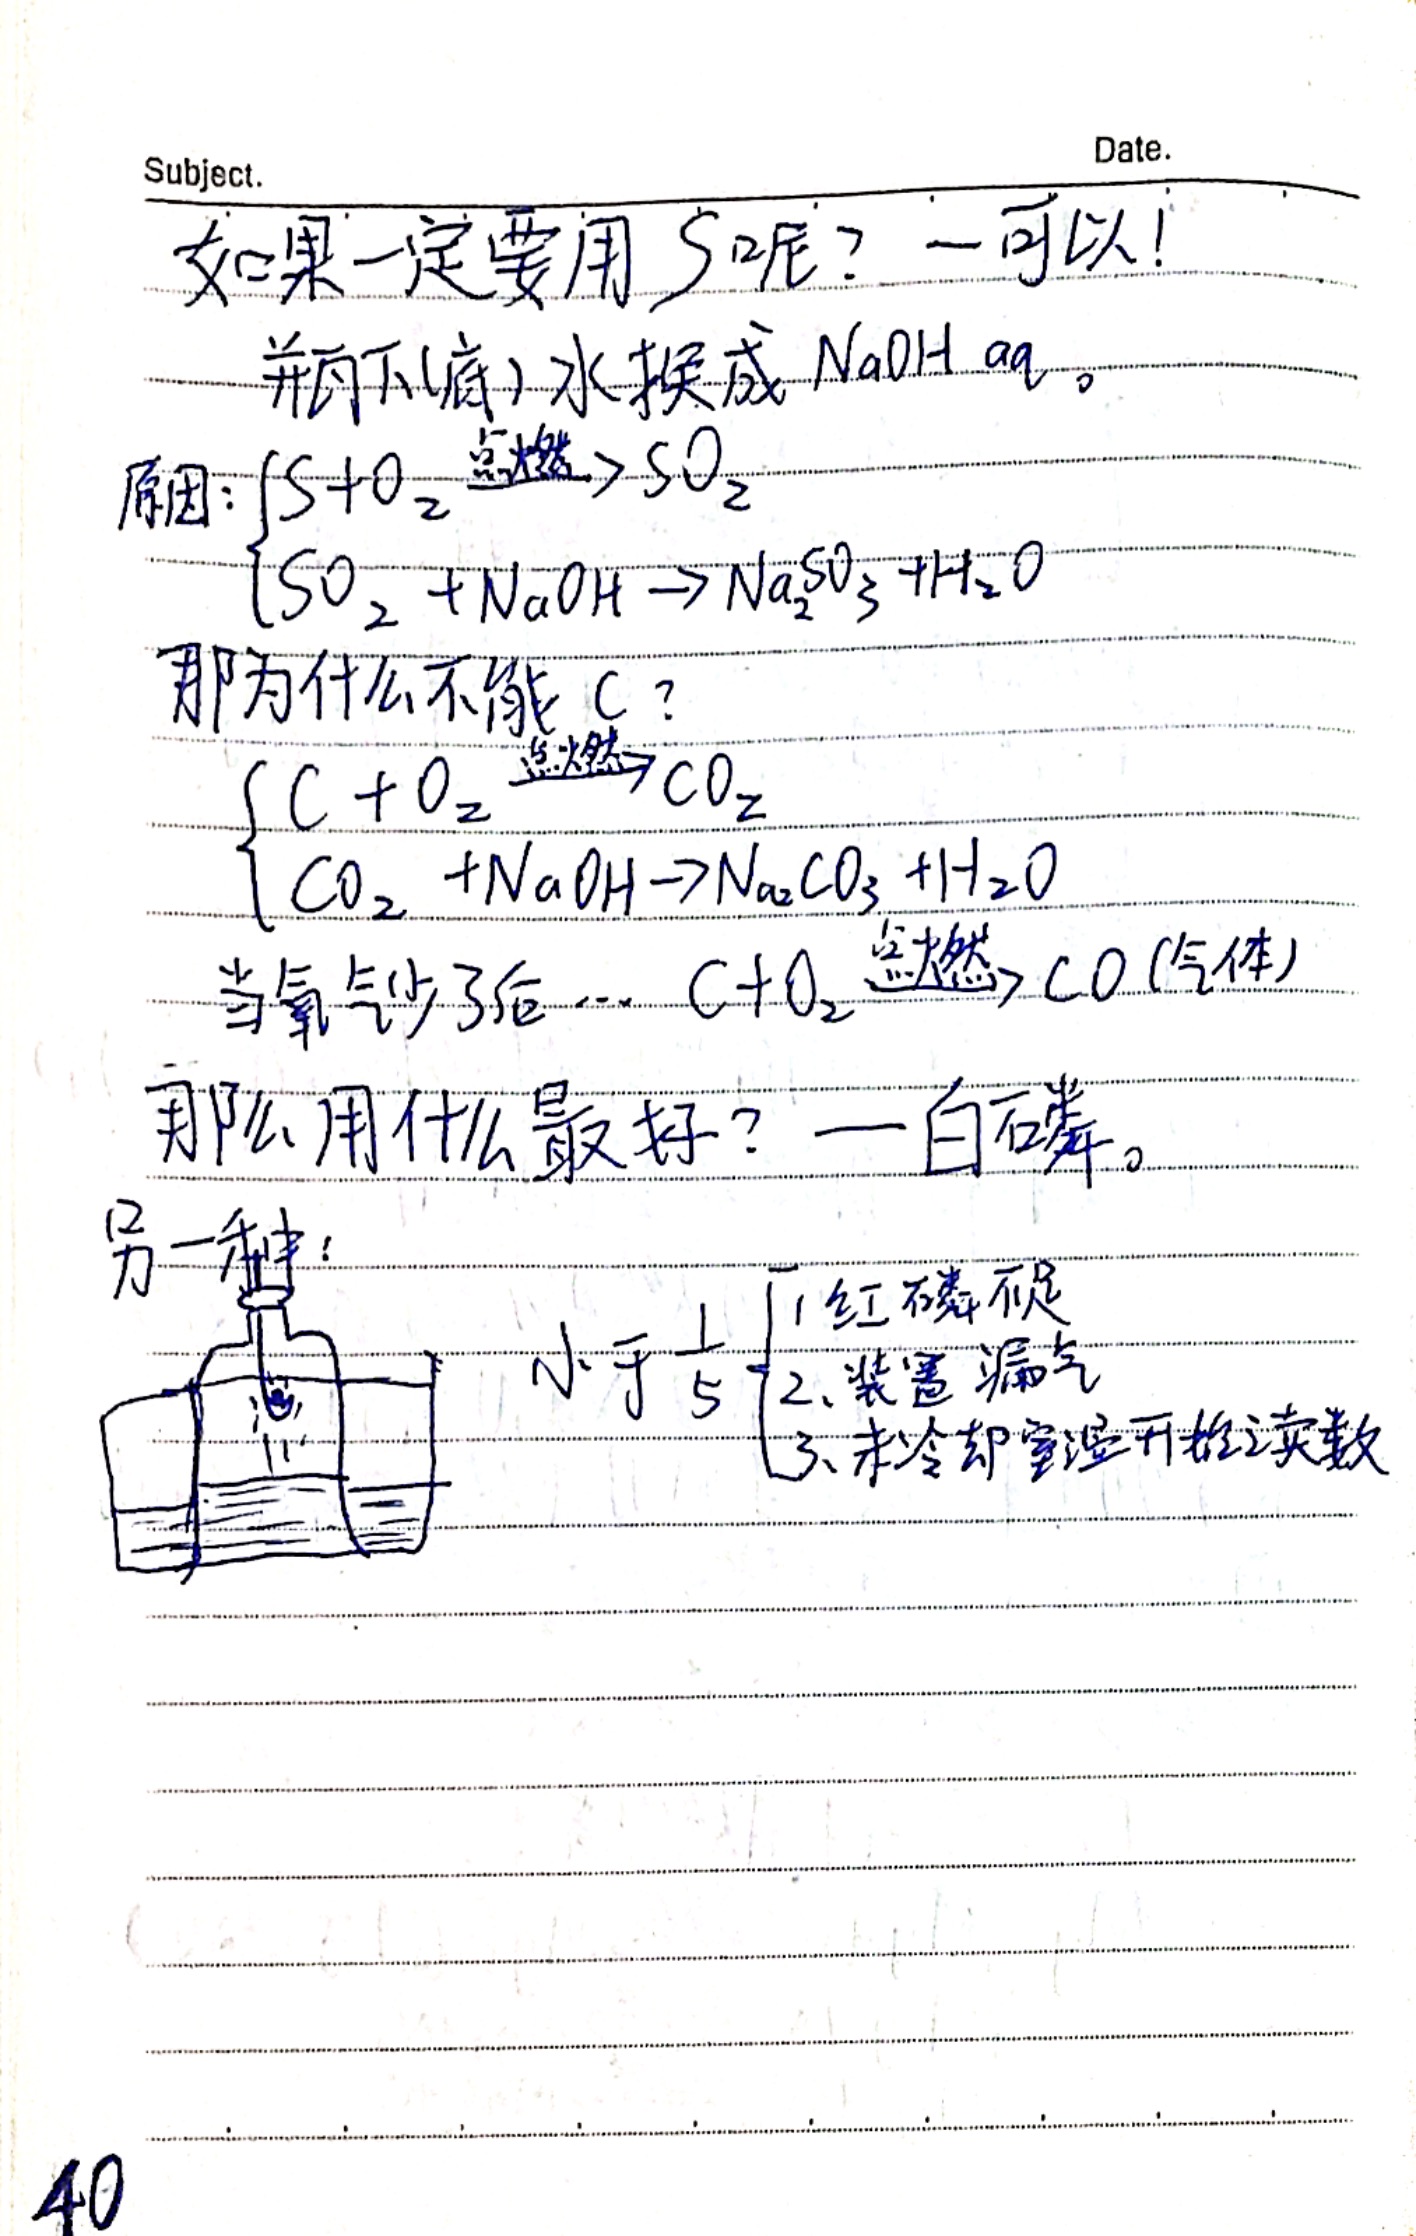 Subject.
Date.
如果一定要用S呢？—可以！
瓶下(底)水换成NaOH aq。
原因：
S+O₂ 点燃→ SO₂
SO₂ +NaOH→Na₂SO₃+H₂O
那为什么不能C？
C+O₂ 点燃→ CO₂
CO₂ +NaOH→Na₂CO₃+H₂O
当氧气少了后… C+O₂ 点燃→ CO(气体)
那么用什么最好？—白磷。
另一种：
小于1/5
1 红磷不足
2、装置漏气
3、未冷却室温开始读数
40